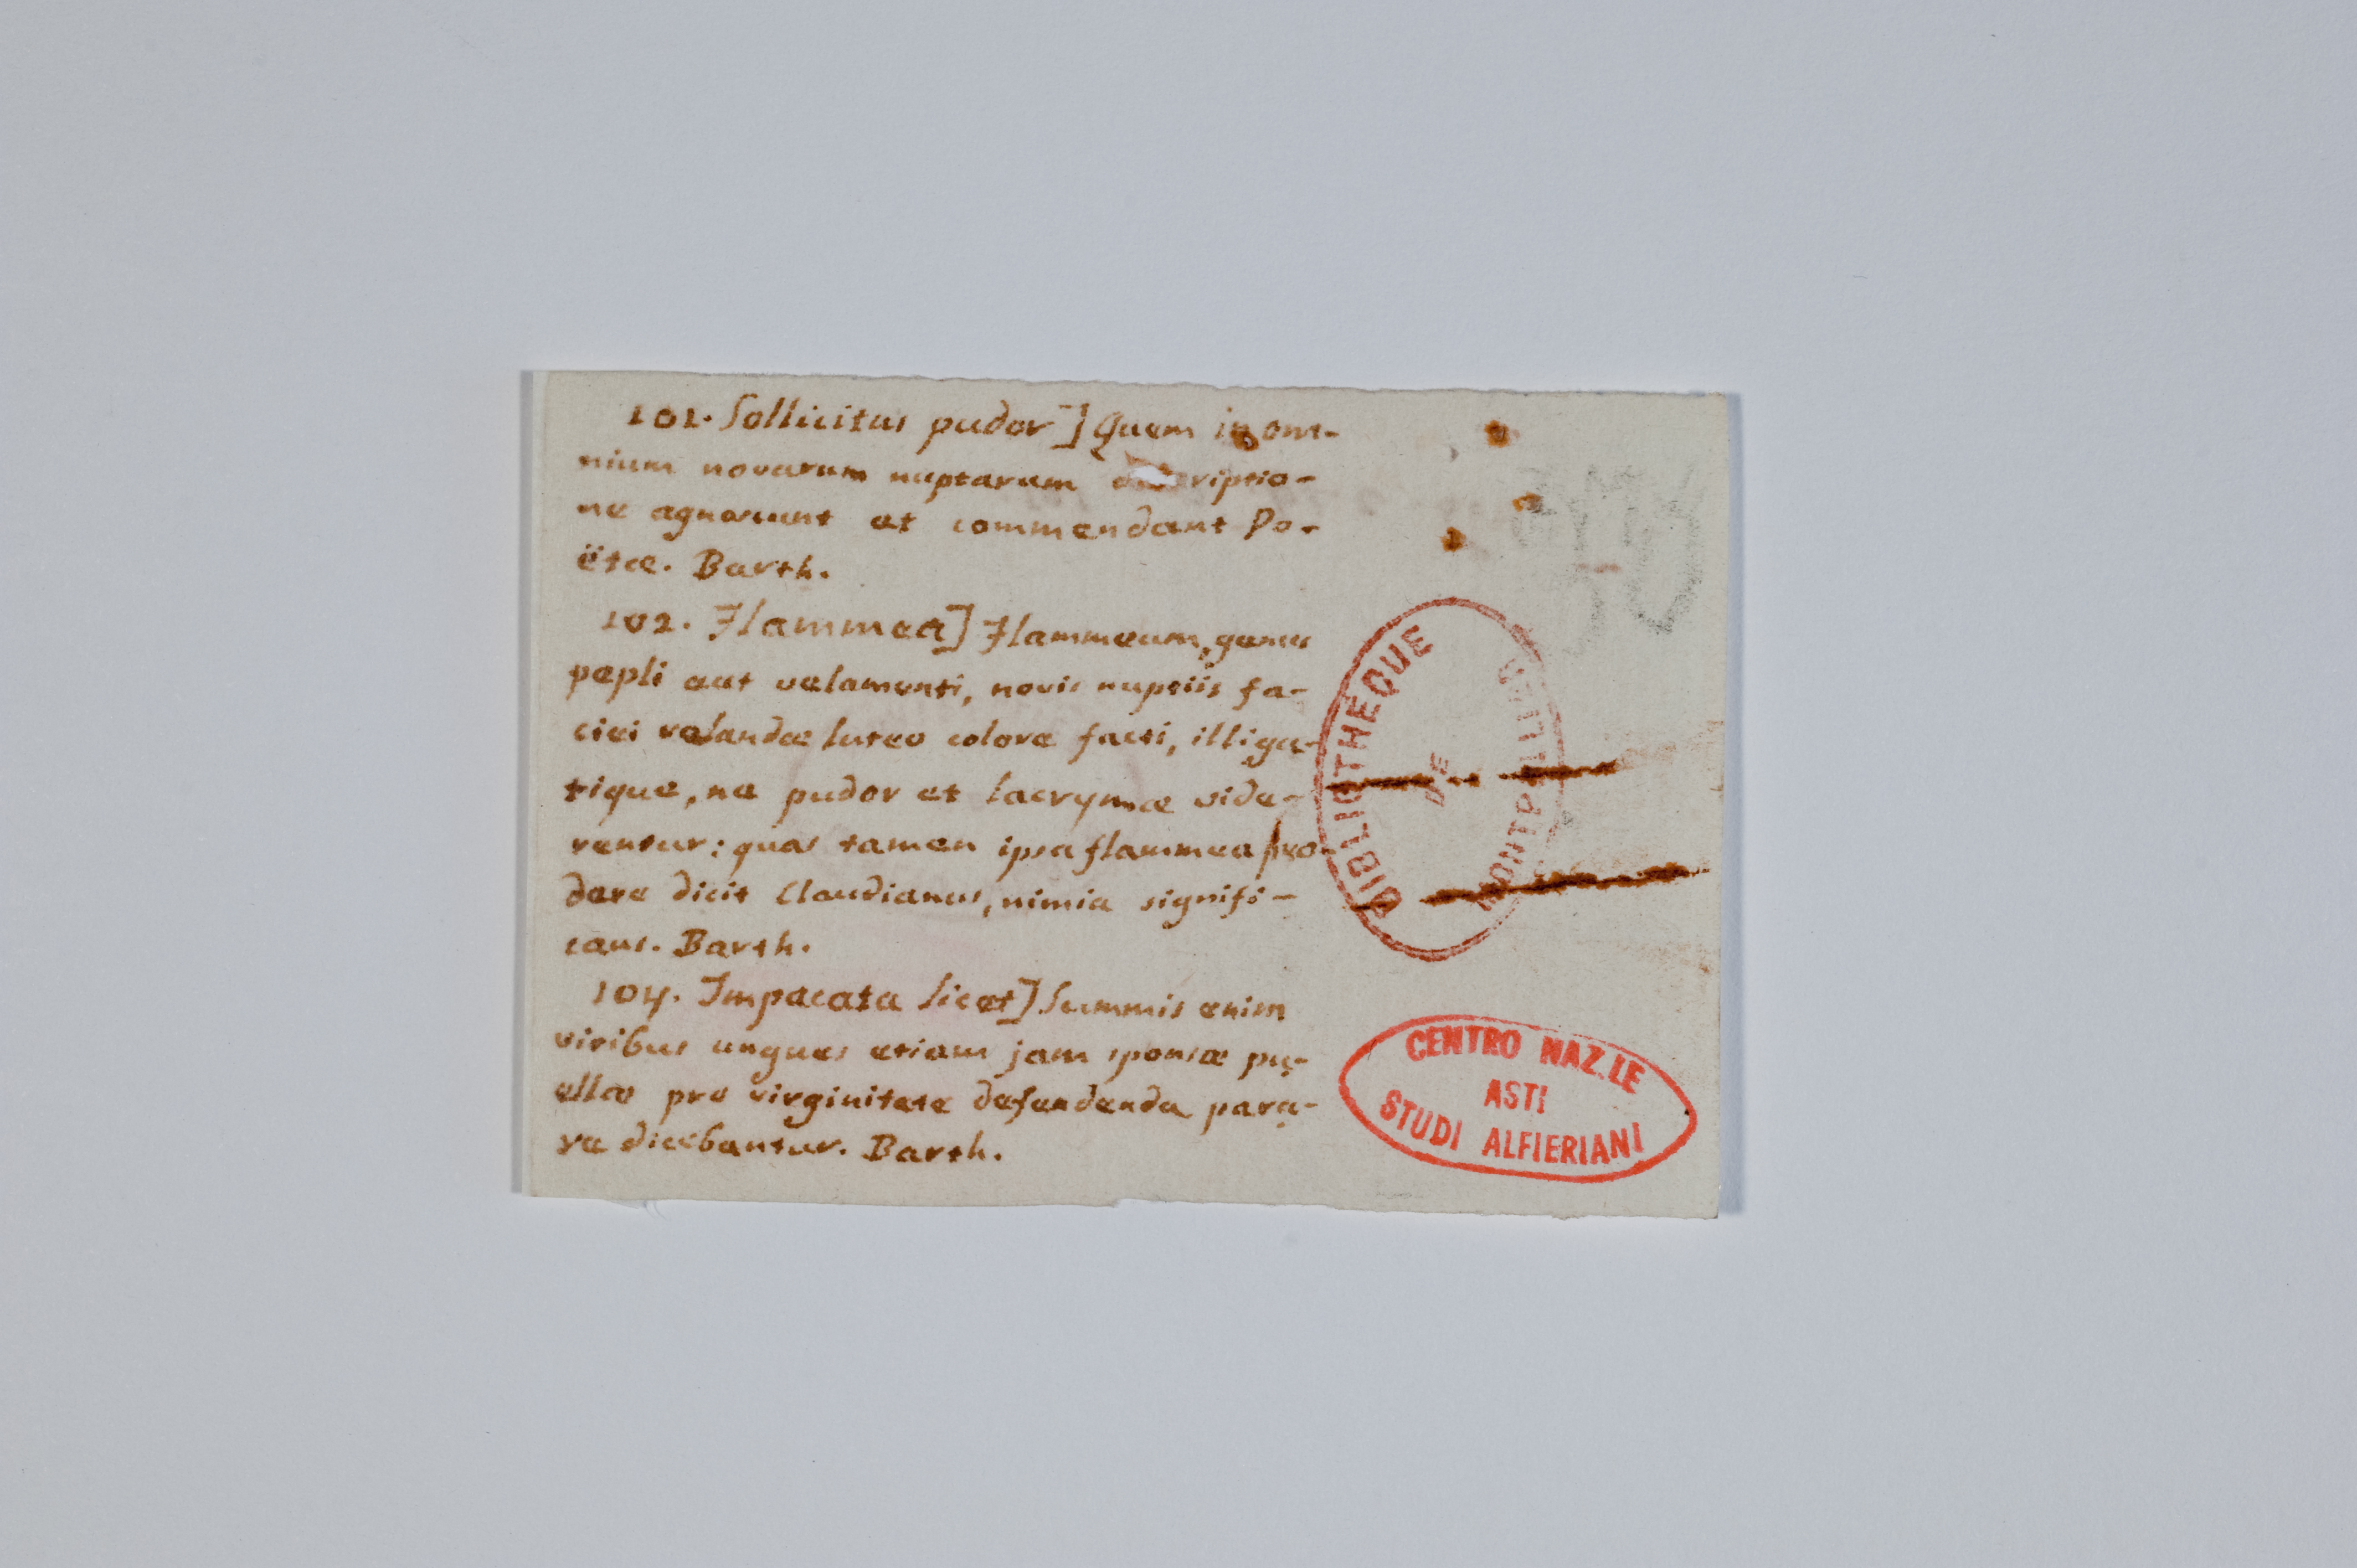 101. Sollicitus pudor] Quem in om-
nium novarum nuptarum descriptio-
ne agnoscunt et commendant Po-
ëtæ. Barth.
102. Flammea] Flammeum, genus
pepli aut velamenti, novis nuptiis fa-
ciei velandæ luteo colore facti, illiga-
tique, ne pudor et lacrymæ vide-
rentur: quas tamen ipsa flammea pro-
dere dicit Claudianus, nimia signifi-
cans. Barth.
104. Impacata licet] Summis enim
viribus ungues etiam jam sponsæ pu-
ellæ pro virginitate defendenda para-
re dicebantur. Barth.
BIBLIOTHÈQUE
DE
MONTPELLIER
CENTRO NAZ.LE
ASTI
STUDI ALFIERIANI